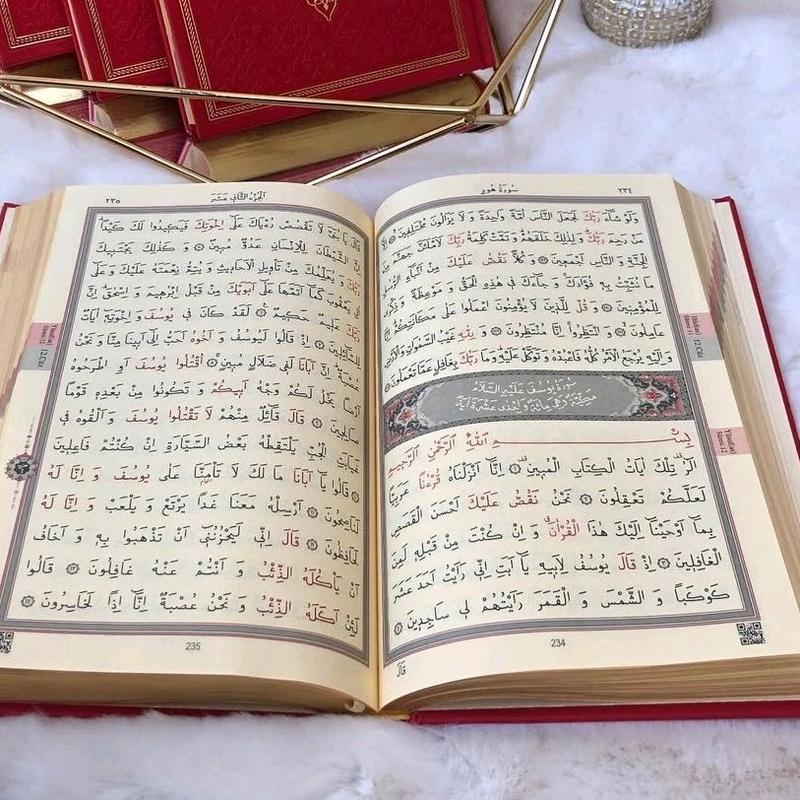 سُورَةُ هُودٍ ٢٣٤
وَلَوْ شَٓاءَ رَبُّكَ لَجَعَلَ النَّاسَ اُمَّةً وَاحِدَةً وَلَا يَزَالُونَ مُخْتَلِفِينَ ۝ اِلَّا
مَنْ رَحِمَ رَبُّكَ وَلِذٰلِكَ خَلَقَهُمْ وَتَمَّتْ كَلِمَةُ رَبِّكَ لَاَمْلَـَٔنَّ جَهَنَّمَ مِنَ
الْجِنَّةِ وَالنَّاسِ اَجْمَعِينَ ۝ وَكُلًّا نَقُصُّ عَلَيْكَ مِنْ اَنْبَٓاءِ الرُّسُلِ
مَا نُثَبِّتُ بِهِ فُؤَادَكَ وَجَٓاءَكَ فِي هٰذِهِ الْحَقُّ وَمَوْعِظَةٌ وَذِكْرٰى
لِلْمُؤْمِنِينَ ۝ وَقُلْ لِلَّذِينَ لَا يُؤْمِنُونَ اعْمَلُوا عَلٰى مَكَانَتِكُمْ اِنَّا
عَامِلُونَ ۝ وَانْتَظِرُوا اِنَّا مُنْتَظِرُونَ ۝ وَلِلّٰهِ غَيْبُ السَّمٰوَاتِ وَالْاَرْضِ
وَاِلَيْهِ يُرْجَعُ الْاَمْرُ كُلُّهُ فَاعْبُدْهُ وَتَوَكَّلْ عَلَيْهِ وَمَا رَبُّكَ بِغَافِلٍ عَمَّا تَعْمَلُونَ ۝
سُورَةُ يُوسُفَ عَلَيْهِ السَّلَامُ
مَكِّيَّةٌ وَهِيَ مِائَةٌ وَاِحْدٰى عَشْرَةَ اٰيَةً
بِسْمِ اللّٰهِ الرَّحْمٰنِ الرَّحِيمِ
الٓرٰ تِلْكَ اٰيَاتُ الْكِتَابِ الْمُبِينِ ۝ اِنَّٓا اَنْزَلْنَاهُ قُرْءٰنًا عَرَبِيًّا
لَعَلَّكُمْ تَعْقِلُونَ ۝ نَحْنُ نَقُصُّ عَلَيْكَ اَحْسَنَ الْقَصَصِ
بِمَٓا اَوْحَيْنَٓا اِلَيْكَ هٰذَا الْقُرْاٰنَ وَاِنْ كُنْتَ مِنْ قَبْلِهِ لَمِنَ
الْغَافِلِينَ ۝ اِذْ قَالَ يُوسُفُ لِاَبِيهِ يَٓا اَبَتِ اِنِّي رَاَيْتُ اَحَدَ عَشَرَ
كَوْكَبًا وَالشَّمْسَ وَالْقَمَرَ رَاَيْتُهُمْ لِي سَاجِدِينَ ۝
234
قَالَ
Hûd Suresi 11
12. Cüz
Yûsuf Suresi 12
اَلْجُزْءُ الثَّانِي عَشَرَ ٢٣٥
قَالَ يَا بُنَيَّ لَا تَقْصُصْ رُءْيَاكَ عَلٰٓى اِخْوَتِكَ فَيَكِيدُوا لَكَ كَيْدًا
اِنَّ الشَّيْطَانَ لِلْاِنْسَانِ عَدُوٌّ مُبِينٌ ۝ وَكَذٰلِكَ يَجْتَبِيكَ
رَبُّكَ وَيُعَلِّمُكَ مِنْ تَأْوِيلِ الْاَحَادِيثِ وَيُتِمُّ نِعْمَتَهُ عَلَيْكَ وَعَلٰٓى
اٰلِ يَعْقُوبَ كَمَٓا اَتَمَّهَا عَلٰٓى اَبَوَيْكَ مِنْ قَبْلُ اِبْرٰهِيمَ وَاِسْحٰقَ اِنَّ
رَبَّكَ عَلِيمٌ حَكِيمٌ ۝ لَقَدْ كَانَ فِي يُوسُفَ وَاِخْوَتِهِ اٰيَاتٌ
لِلسَّٓائِلِينَ ۝ اِذْ قَالُوا لَيُوسُفُ وَاَخُوهُ اَحَبُّ اِلٰٓى اَبِينَا مِنَّا وَنَحْنُ
عُصْبَةٌ اِنَّ اَبَانَا لَفِي ضَلَالٍ مُبِينٍ ۝ اُقْتُلُوا يُوسُفَ اَوِ اطْرَحُوهُ
اَرْضًا يَخْلُ لَكُمْ وَجْهُ اَبِيكُمْ وَتَكُونُوا مِنْ بَعْدِهِ قَوْمًا
صَالِحِينَ ۝ قَالَ قَٓائِلٌ مِنْهُمْ لَا تَقْتُلُوا يُوسُفَ وَاَلْقُوهُ فِي
غَيَابَتِ الْجُبِّ يَلْتَقِطْهُ بَعْضُ السَّيَّارَةِ اِنْ كُنْتُمْ فَاعِلِينَ
۝ قَالُوا يَٓا اَبَانَا مَا لَكَ لَا تَأْمَنَّا عَلٰى يُوسُفَ وَاِنَّا لَهُ
لَنَاصِحُونَ ۝ اَرْسِلْهُ مَعَنَا غَدًا يَرْتَعْ وَيَلْعَبْ وَاِنَّا لَهُ
لَحَافِظُونَ ۝ قَالَ اِنِّي لَيَحْزُنُنِٓي اَنْ تَذْهَبُوا بِهِ وَاَخَافُ
اَنْ يَأْكُلَهُ الذِّئْبُ وَاَنْتُمْ عَنْهُ غَافِلُونَ ۝ قَالُوا
لَئِنْ اَكَلَهُ الذِّئْبُ وَنَحْنُ عُصْبَةٌ اِنَّٓا اِذًا لَخَاسِرُونَ ۝
235
Yûsuf Suresi 12
12. Cüz